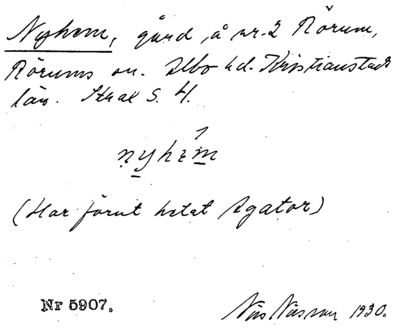 Nyhem, gård å nr. 2 Rörum,
Rörums sn. Albo hd. Kristianstads
län. Skal S. 4.
nyhem
(Har förut hetat Agator)
Nr 5907.
Nils 1930.